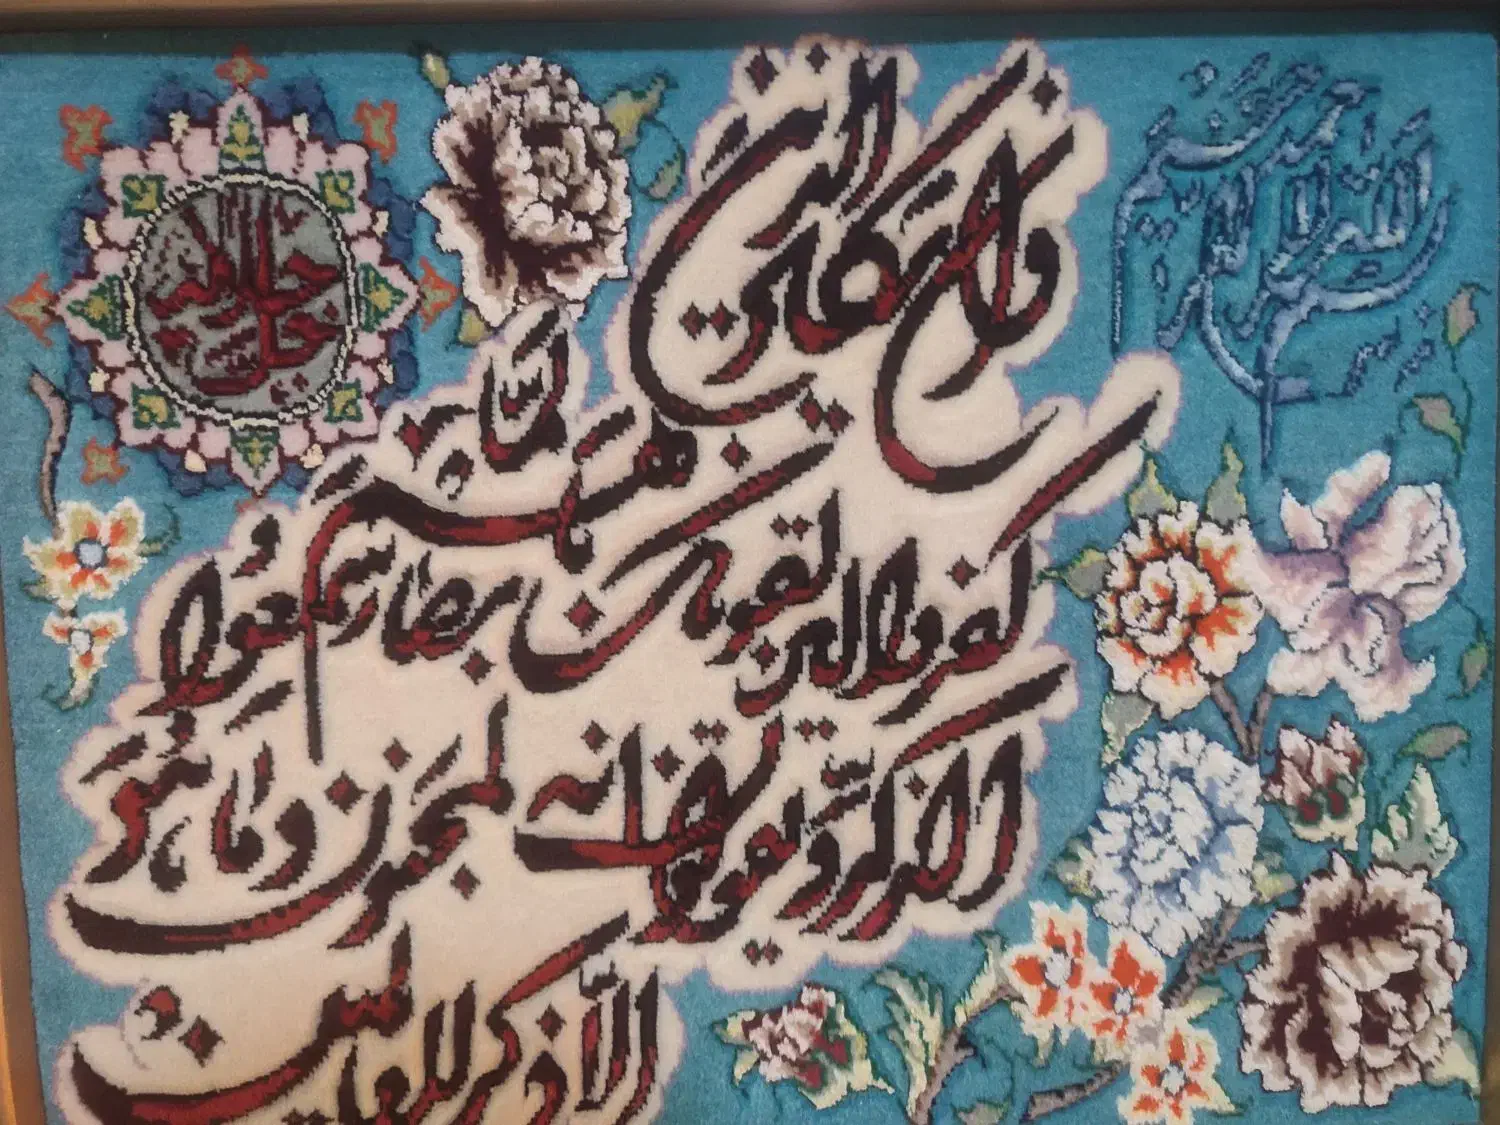 بسم الله الرحمن الرحیم
وان یکاد الذین
کفروا لیزلقونک بابصارهم لما سمعوا
الذکر و یقولون انه لمجنون و ما هو
الا ذکر للعالمین